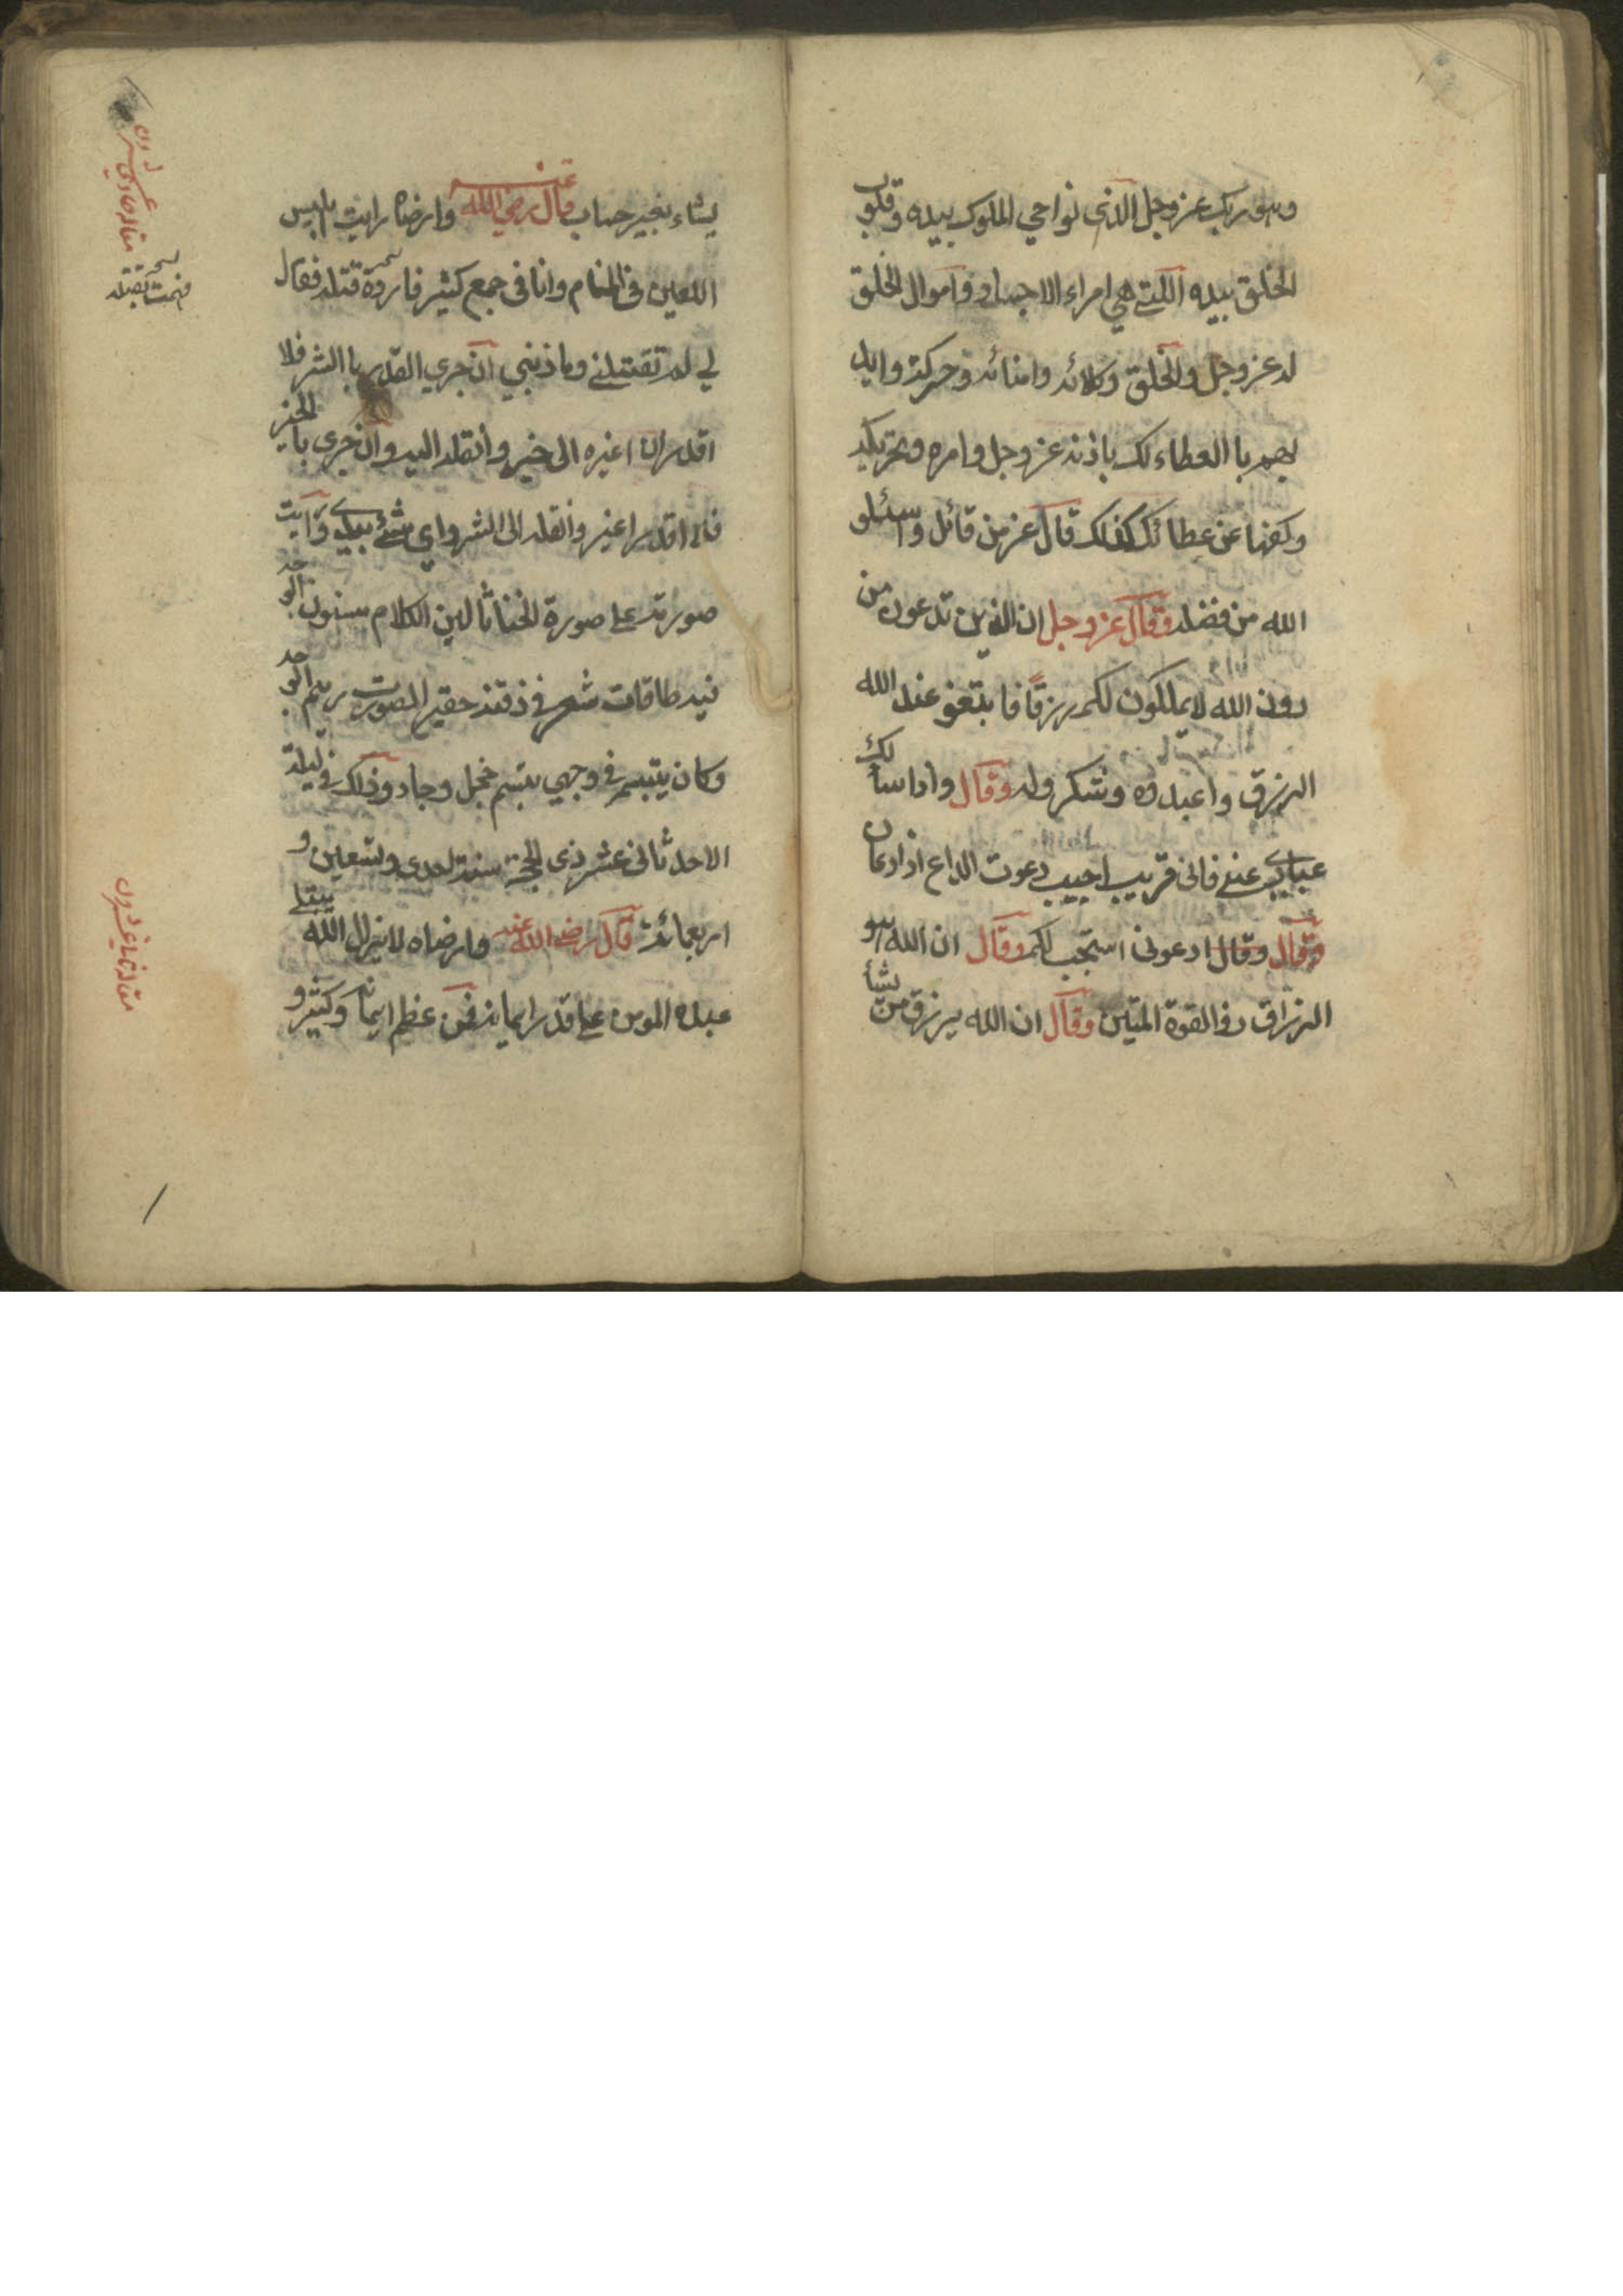 وهو ربك عز وجل الذى نواحي الملوك بيده وقلوب
الخلق بيده اللتى هي امراء الاجساد واموال الخلق
له عز وجل والخلق وكلائه وامنائه وحركة وايد
يهم با العطاء لك باذنه عز وجل وامره وتحريكه
وكفها عن عطائك كذلك قال عز من قائل واسئلو
الله من فضله وقال عز وجل ان الذين تدعون من
دون الله لا يملكون لكم رزقاً فابتغو عند الله
الرزق واعبدوه وشكرو له وقال واذا سألك
عبادي عنى فانى قريب اجيب دعوت الداع اذا دعان
وقال وقال ادعونى استجب لكم وقال ان الله هو
الرزاق ذو القوة المتين وقال ان الله يرزق من يشأ
يشاء بغير حساب قال رضي الله عنه وارضاه رايت ابليس
اللعين فى المنام وانا فى جمع كثير فاردة قتله فقال
لي لم تقتلنى وما ذنبي ان جري القدر با الشر فلا
اقدر انا اغيره الى خير وأنقله اليه وان جرى با الخير
فلا اقدر اغير وأنقله الى الشر واي شئ بيدي ورايت
صورته على صورة الخناثا لين الكلام سنوك الوجه
فيه طاقات شعر فى ذقنه حقير الصورت رميم الوجه
وكان يتبسم فى وجهي تبسم خجل وجاد وذلك فى ليلة
الاحد ثانى عشر ذى الحجة سنة احدى وتسعين و
اربعمائة قال رضي الله عنه وارضاه لا يزال الله يبتلى
عبده المومن على قدر ايمانه فمن عظم ايمانه وكثر و
فهمت بقتله
مقاله حادي عشرون
مقاله ثمانيه عشرون